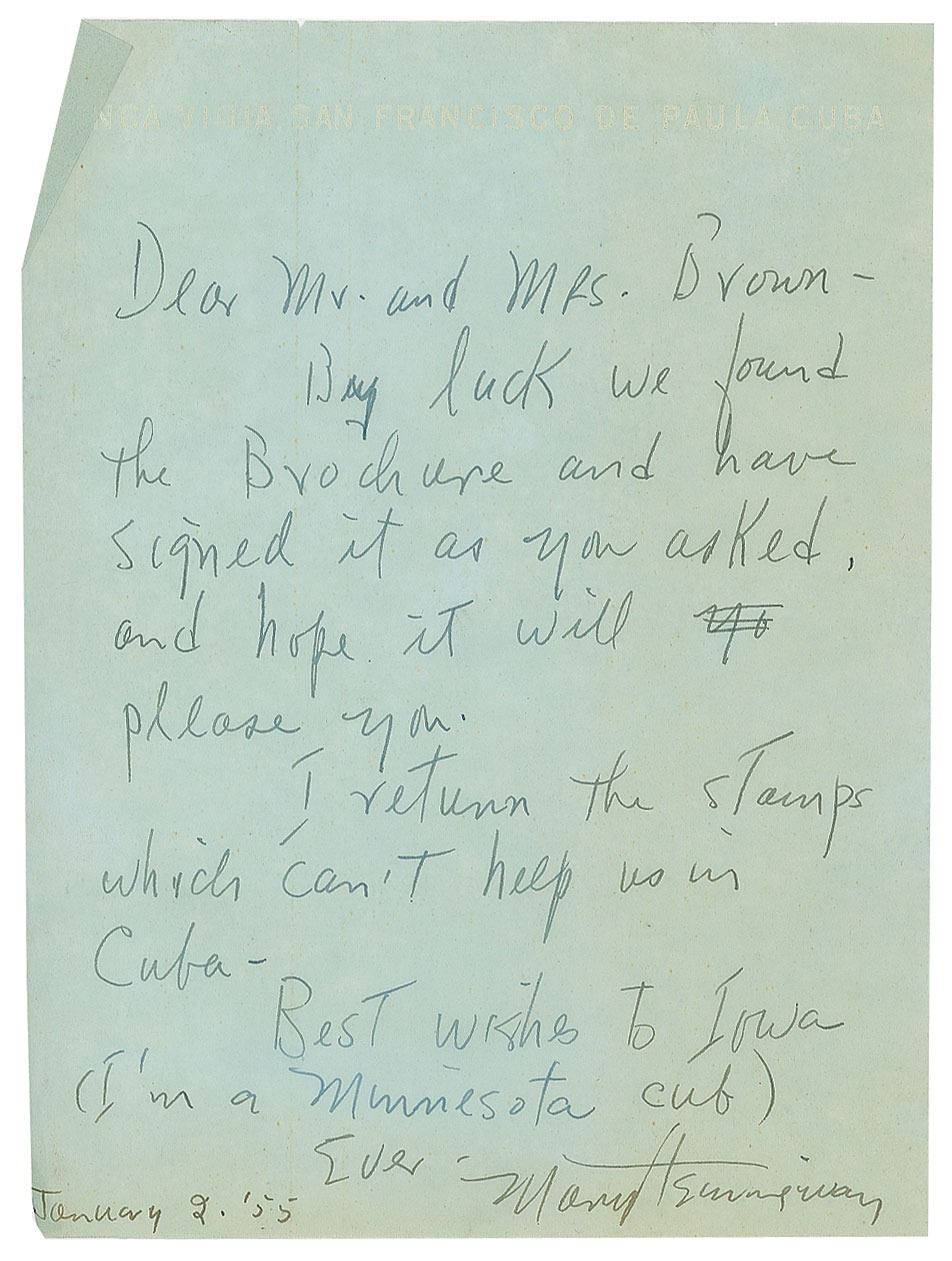 NCA VIGIA, SAN FRANCISCO DE PAULA, CUBA
Dear Mr. and Mrs. Brown-
By luck we found
the Brochure and have
signed it as you asked,
and hope it will
please you.
I return the stamps
which can't help us in
Cuba-
Best wishes to Iowa
(I'm a Minnesota cub)
Ever-
Mary Hemingway
January 2. '55